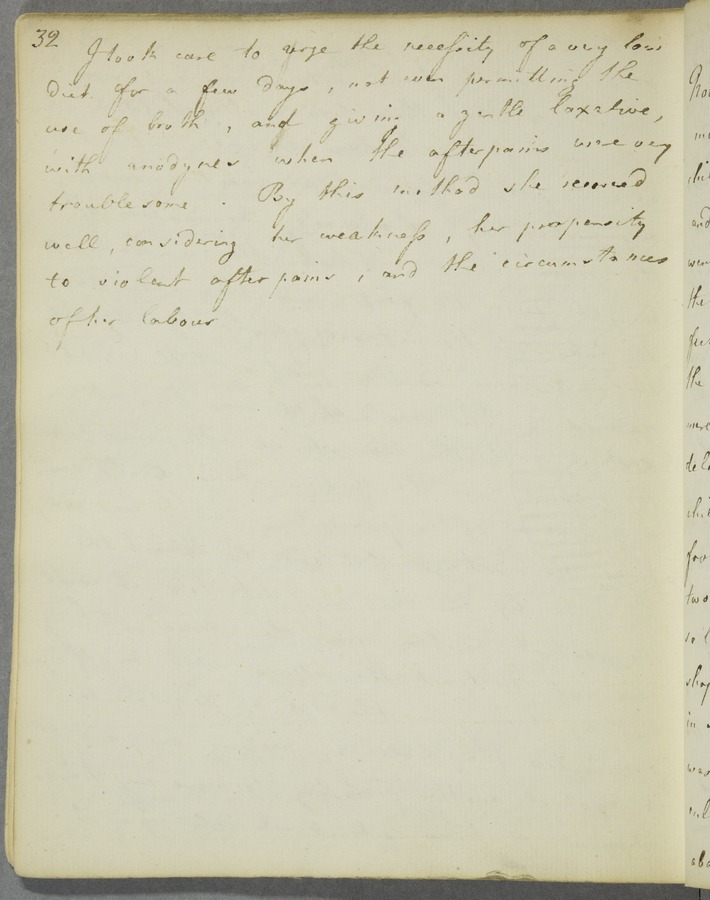 32
I took care to urge the necessity of a very low
diet for a few days, not even permitting the
use of broth, and giving a gentle laxative,
with anodynes when the afterpains were very
troublesome. By this method she recovered
well, considering her weakness, her propensity
to violent after pains, and the circumstances
of her labour